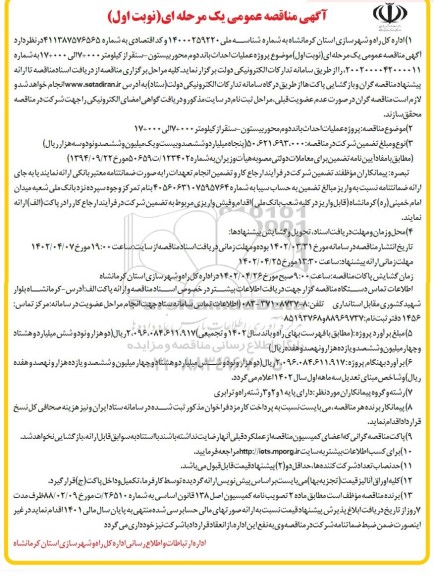 آگهی مناقصه عمومی یک مرحله ای (نوبت اول)
۱) اداره کل راه و شهرسازی استان کرمانشاه به شماره شناسه ملی ۱۴۰۰۰۲۵۹۲۲۰ و کد اقتصادی به شماره ۴۱۱۳۸۷۵۷۶۵۶۵ در نظر دارد
آگهی مناقصه عمومی یک مرحله ای (نوبت اول) موضوع پروژه عملیات احداث باند دوم محور بیستون-سنقر از کیلومتر ۷۰۰۰ الی ۱۷۰۰۰ به شماره
را از طریق سامانه تدارکات الکترونیکی دولت برگزار نماید. کلیه مراحل برگزاری مناقصه از دریافت اسناد مناقصه تا ارائه
پیشنهاد مناقصه گران و بازگشایی پاکت ها از طریق درگاه سامانه تدارکات الکترونیکی دولت (ستاد) به آدرس www.setadiran.ir انجام خواهد شد.
لازم است مناقصه گران در صورت عدم عضویت قبلی، مراحل ثبت نام در سایت مذکور و دریافت گواهی امضای الکترونیکی را جهت شرکت در مناقصه
محقق سازند.
۲) موضوع مناقصه: پروژه عملیات احداث باند دوم محور بیستون-سنقر از کیلومتر ۷۰۰۰ الی ۱۷۰۰۰
۳) نوع و مبلغ تضمین شرکت در مناقصه: ۵۰.۶۲۱.۶۹۳.۰۰۰ (پنجاه میلیارد و ششصد و بیست و یک میلیون و ششصد و نود و سه هزار ریال)
(مطابق با مفاد آیین نامه تضمین برای معاملات دولتی مصوبه هیأت وزیران به شماره ۱۲۳۴۰۲/ت۵۰۶۵۹ه مورخ ۱۳۹۴/۰۹/۲۲)
تبصره: پیمانکاران موظفند تضمین شرکت در فرآیند ارجاع کار و تضمین انجام تعهدات را به صورت ضمانتنامه معتبر بانکی ارائه نمایند یا به جای
ارائه ضمانتنامه نسبت به واریز مبالغ تضمین به حساب سیبا به شماره ۴۰۵۶۰۶۳۱۰۷۵۹۵۷۶۴ بنام تمرکز وجوه سپرده نزد بانک ملی شعبه میدان
امام خمینی(ره) کرمانشاه (قابل واریز در کلیه شعب بانک ملی) اقدام و فیش واریزی مربوط به تضمین شرکت در فرآیند ارجاع کار را در پاکت (الف) ارائه
نمایند.
۴) محل و زمان و مهلت دریافت اسناد، تحویل و گشایش پیشنهادها:
تاریخ انتشار مناقصه در سامانه مورخ ۱۴۰۲/۰۳/۳۱ بوده و مهلت زمانی دریافت اسناد مناقصه از سایت: ساعت ۱۹:۰۰ مورخ ۱۴۰۲/۰۴/۰۷
مهلت زمانی ارائه پیشنهاد: ساعت ۱۳:۳۰ مورخ ۱۴۰۲/۰۴/۲۵
زمان گشایش پاکات مناقصه: ساعت ۹:۰۰ صبح مورخ ۱۴۰۲/۰۴/۲۶ در اداره کل راه و شهرسازی استان کرمانشاه
اطلاعات تماس دستگاه مناقصه گزار جهت دریافت اطلاعات بیشتر در خصوص اسناد مناقصه و ارائه پاکت الف: آدرس-کرمانشاه بلوار
شهید کشوری مقابل استانداری تلفن: ۸-۰۸۳-۳۷۱۰۸۷۳۷ (اطلاعات تماس سامانه ستاد جهت انجام مراحل عضویت در سامانه: مرکز تماس:
۱۴۵۶ دفتر ثبت نام: ۸۸۹۶۹۷۳۷ و ۸۵۱۹۳۷۶۸)
۵) مبلغ برآورد پروژه: (مطابق با فهرست بهای راه و باند سال ۱۴۰۲ و تجمیعی) ۲.۰۹۶.۰۸۴.۶۱۱.۹۱۷ ریال (دو هزار و نود و شش میلیارد و هشتاد
و چهار میلیون و ششصد و یازده هزار و نهصد و هفده ریال)
۶) برآورد بهنگام پروژه: ۲.۰۹۶.۰۸۴.۶۱۱.۹۱۷ ریال (دو هزار و نود و شش میلیارد و هشتاد و چهار میلیون و ششصد و یازده هزار و نهصد و هفده
ریال) و شاخص مبنای تعدیل سه ماهه اول سال ۱۴۰۲ اعلام می گردد.
۷) رشته و گروه پیمانکاران مورد نظر: دارای پایه ۱ و ۲ و ۳ رشته راه و ترابری
۸) پیمانکار برنده هر مناقصه، می بایست نسبت به پرداخت کارمزد فراخوان مذکور ثبت شده در سامانه ستاد ایران و نیز هزینه صحافی کل نسخ
قرارداد اقدام نماید.
۹) پاکت مناقصه گرانی که اعضای کمیسیون مناقصه از عملکرد قبلی آنها رضایت نداشته باشند با استناد به سوابق قابل ارائه، بازگشایی نخواهد شد.
۱۰) برای کسب اطلاعات بیشتر به سایت http://iets.mporg.ir مراجعه فرمایید.
۱۱) حد نصاب تعداد شرکت کننده ها، حداقل دو (۲) پیشنهاد قیمت قابل قبول می باشد.
۱۲) کلیه اوراق آنالیز قیمت (تجزیه بها) می بایست بر اساس پیش نویس ارائه گردیده توسط کارفرما، تکمیل و داخل پاکت (ج) قرار گیرد.
۱۳) برنده مناقصه مؤظف است مطابق ماده ۲ تصویب نامه کمیسیون اصل ۱۳۸ قانون اساسی به شماره ۲۶۵۱۰/ت مورخ ۸۸/۰۲/۰۹ ظرف مدت
۷ روز از تاریخ دریافت ابلاغ پذیرش پیشنهاد قیمت نسبت به ارائه صورتهای مالی حسابرسی شده منتهی به پایان سال مالی ۱۴۰۱ اقدام نماید در غیر
اینصورت ضمن ضبط ضمانتنامه شرکت در مناقصه وی به نفع این اداره، از انعقاد قرارداد با شرکت نیز خودداری می گردد
اداره ارتباطات و اطلاع رسانی اداره کل راه و شهرسازی استان کرمانشاه